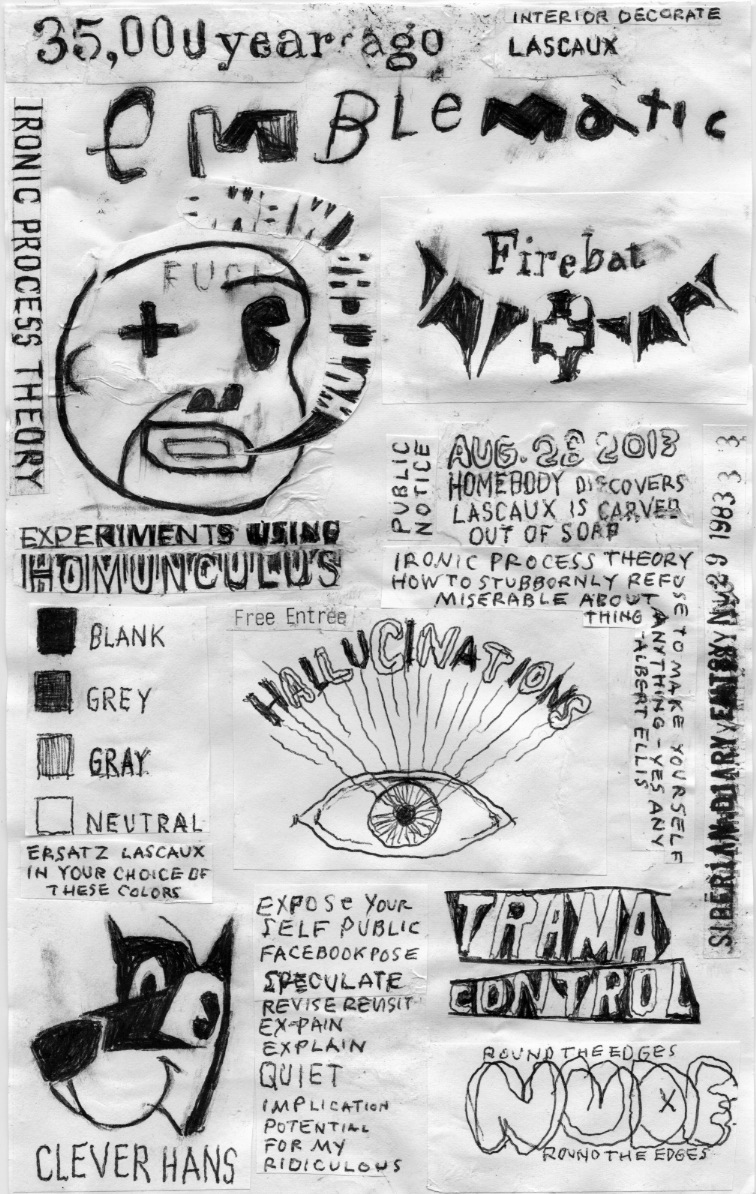 35,000 year ago
INTERIOR DECORATE
LASCAUX
emBLematic
IRONIC PROCESS THEORY
FUCK
Firebat
PUBLIC
NOTICE
AUG. 28 2013
HOMEBODY DISCOVERS
LASCAUX IS CARVED
OUT OF SOAP
EXPERIMENTS USING
HOMUNCULUS
IRONIC PROCESS THEORY
HOW TO STUBBORNLY REFUSE TO MAKE YOURSELF
MISERABLE ABOUT ANYTHING - YES ANY
THING - ALBERT ELLIS
SIBERIAN DIARY ENTRY 29 1983 3 3
BLANK
GREY
GRAY
NEUTRAL
ERSATZ LASCAUX
IN YOUR CHOICE OF
THESE COLORS
Free Entrée
HALLUCINATIONS
CLEVER HANS
EXPOSE YOUR
SELF PUBLIC
FACEBOOK POSE
SPECULATE
REVISE REVISIT
EX-PAIN
EXPLAIN
QUIET
IMPLICATION
POTENTIAL
FOR MY
RIDICULOUS
TRAMA
CONTROL
ROUND THE EDGES
NUDE
ROUND THE EDGES